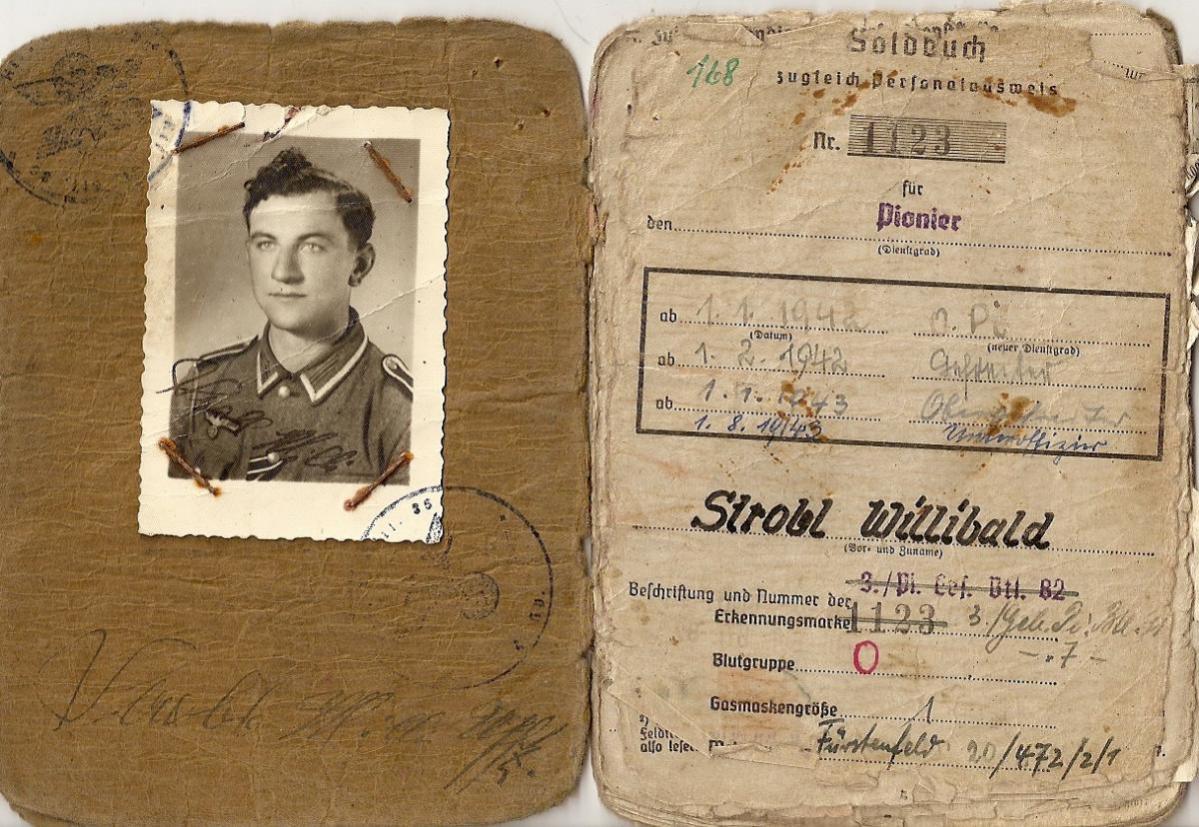 Soldbuch
168
zugleich Personalausweis
Nr. 1123
für
den Pionier
(Dienstgrad)
ab 1. 1. 1942 O. Pi
(Datum) (neuer Dienstgrad)
ab 1. 2. 1942 Gefreiter
ab 1. 1. 1943 Obergefreiter
1. 8. 1943 Unteroffizier
Strobl Willibald
(Vor- und Zuname)
Beschriftung und Nummer der 3./Pi. Ers. Btl. 82
Erkennungsmarke 1123 3/Geb. Pi. Btl.
- " 7 -
Blutgruppe O
Gasmaskengröße 1
also
Fürstenfeld 20/472/2/1